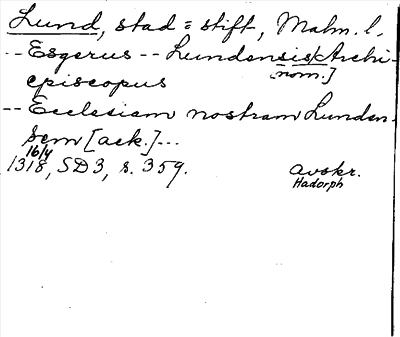 Lund, stad = stift, Malm. l.
-- Esgerus -- Lundensis Archi-
[nom.]
episcopus
-- Ecclesiam nostram Lunden-
sem [ack.]...
16/4
1318, SD3, s. 359.
Avskr.
Hadorph